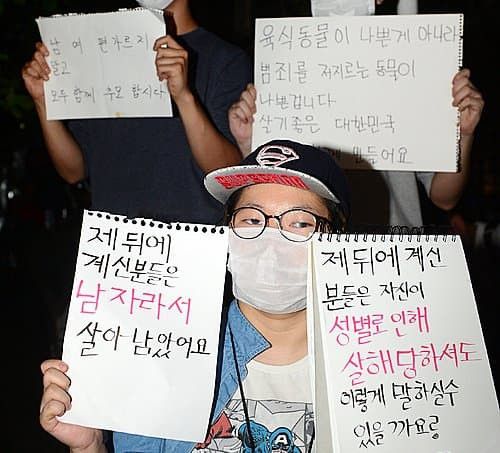 남여 편가르지
말고
모두 함께 추모 합시다
육식동물이 나쁜게 아니라
범죄를 저지르는 동물이
나쁜겁니다
살기좋은 대한민국
만들어요
제 뒤에
계신분들은
남자라서
살아 남았어요
제 뒤에 계신
분들은 자신이
성별로 인해
살해당하셔도
이렇게 말하실수
있을까요?